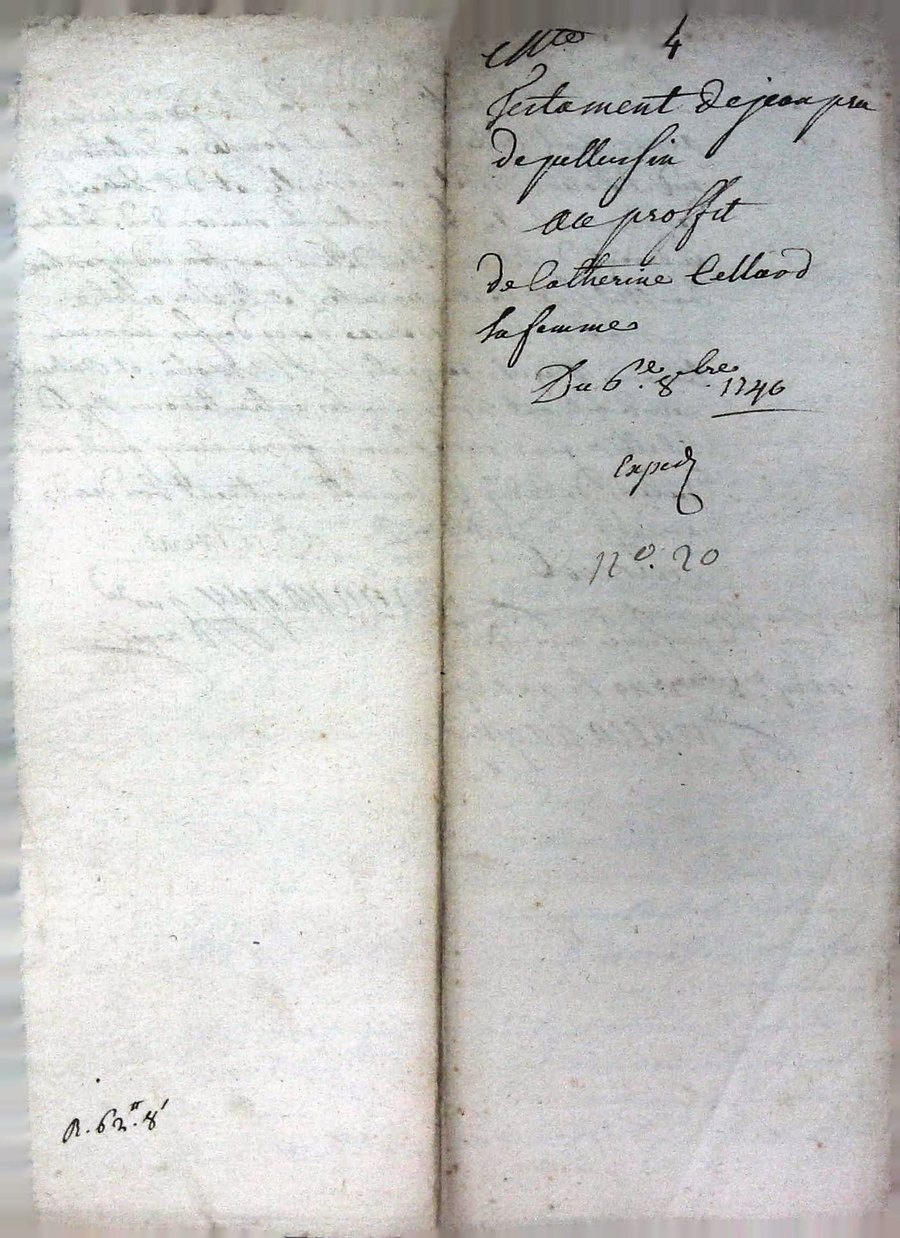 Mte 4
Testament de jean pra
de pellussin
au proffit
de Catherine Cellard
sa femme
Du 6e. 8bre. 1746
Exped
no. 20
R. 62". 8'